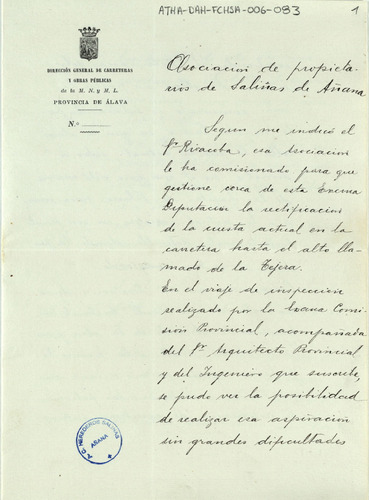 ATHA-DAH-FCHSA-006-083
1
DIRECCIÓN GENERAL DE CARRETERAS
Y OBRAS PÚBLICAS
de la M. N. y M. L.
PROVINCIA DE ÁLAVA
N.º
Asociacion de propieta-
rios de Salinas de Añana
Segun me indicó el
Sr. esa Asociacion
le ha comisionado para que
gestione cerca de esta Excma
Diputacion la rectificacion
de la cuesta actual en la
carretera hasta el alto lla-
mado de la Tejera.
En el viaje de inspeccion
realizado por la Excma Comi-
sion Provincial, acompañada
del Sr. Arquitecto Provincial
y del Ingeniero que suscribe,
se pudo ver la posibilidad
de realizar esa aspiracion
sin grandes dificultades
HEREDEROS SALINAS
AÑANA